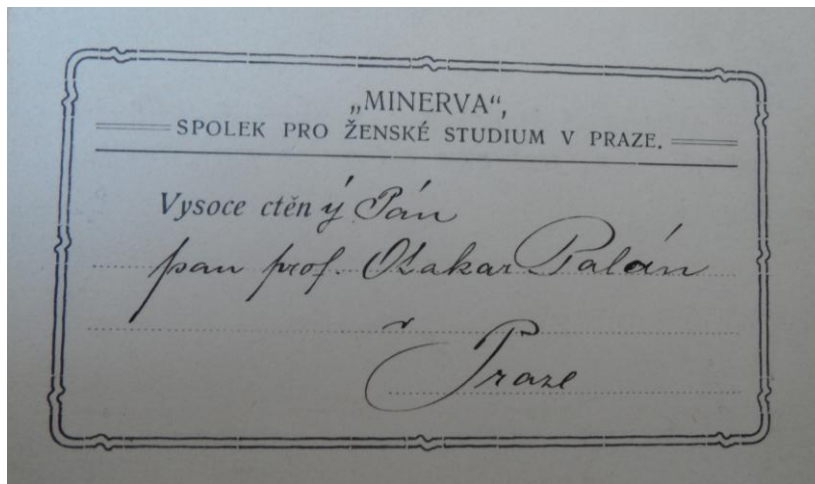 „MINERVA“,
SPOLEK PRO ŽENSKÉ STUDIUM V PRAZE.
Vysoce ctěný Pán
pan prof. Otakar Palán
v Praze